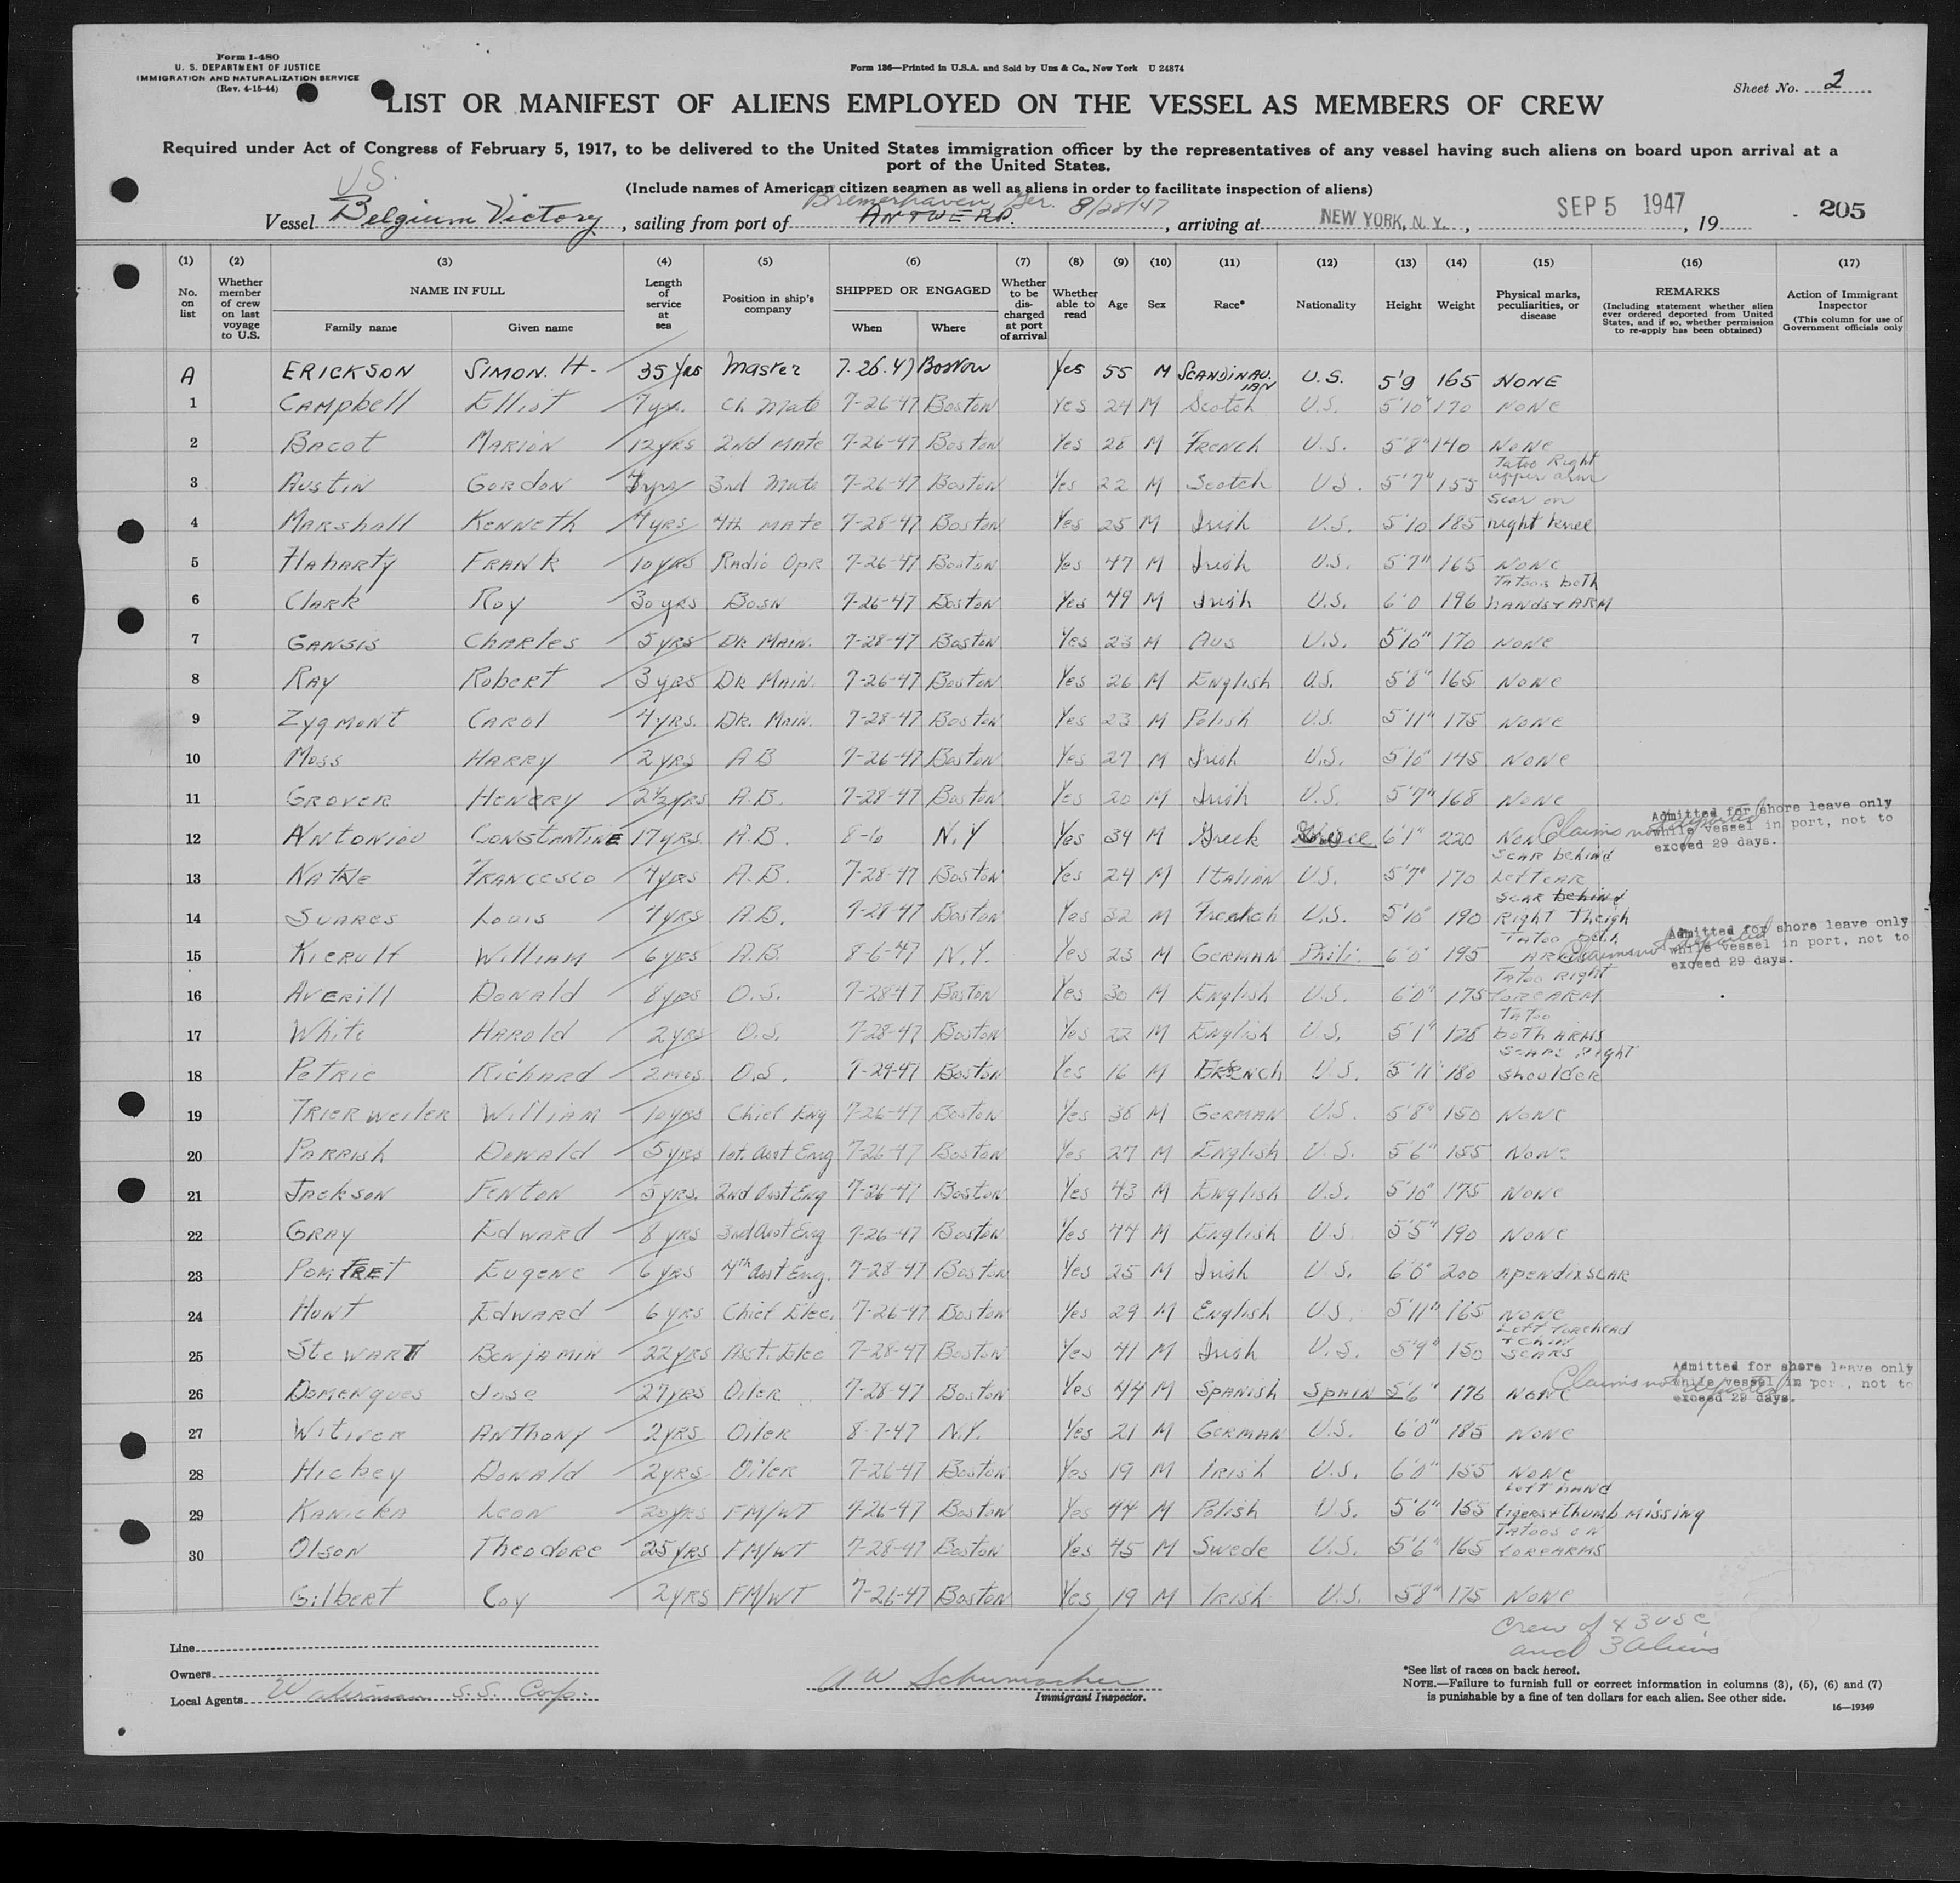 Form I-480
U. S. DEPARTMENT OF JUSTICE
IMMIGRATION AND NATURALIZATION SERVICE
(Rev. 4-15-44)
Form 136—Printed in U.S.A. and Sold by Unz & Co., New York U 24874
Sheet No. 2
LIST OR MANIFEST OF ALIENS EMPLOYED ON THE VESSEL AS MEMBERS OF CREW
Required under Act of Congress of February 5, 1917, to be delivered to the United States immigration officer by the representatives of any vessel having such aliens on board upon arrival at a
port of the United States.
(Include names of American citizen seamen as well as aliens in order to facilitate inspection of aliens)
U.S. Bremerhaven, Ger. 8/28/47
Vessel Belgium Victory, sailing from port of ANTWERP., arriving at NEW YORK, N. Y., SEP 5 1947, 19 205
(1) (2) (3) (4) (5) (6) (7) (8) (9) (10) (11) (12) (13) (14) (15) (16) (17)
No. on list Whether member of crew on last voyage to U.S. NAME IN FULL Family name Given name Length of service at sea Position in ship's company SHIPPED OR ENGAGED When Where Whether to be discharged at port of arrival Whether able to read Age Sex Race* Nationality Height Weight Physical marks, peculiarities, or disease REMARKS (Including statement whether alien ever ordered deported from United States, and if so, whether permission to re-apply has been obtained) Action of Immigrant Inspector (This column for use of Government officials only
A ERICKSON SIMON. H- 35 yrs Master 7.26.47 Boston Yes 55 M SCANDINAVIAN U.S. 5'9 165 NONE
1 Campbell Elliot 7 yrs. Ch Mate 7-26-47 Boston Yes 24 M Scotch U.S. 5'10" 170 NONE
2 Bacot Marion 12 yrs 2nd Mate 7-26-47 Boston Yes 28 M French U.S. 5'8" 140 None
3 Austin Gordon yrs 3rd Mate 7-26-47 Boston Yes 22 M Scotch U.S. 5'7" 155 Tatoo Right upper arm
4 Marshall Kenneth 4 yrs 4th Mate 7-28-47 Boston Yes 25 M Irish U.S. 5'10 185 scar on right knee
5 Flaharty Frank 10 yrs Radio Opr 7-26-47 Boston Yes 47 M Irish U.S. 5'7" 165 None
6 Clark Roy 30 yrs Bosn 7-26-47 Boston Yes 49 M Irish U.S. 6'0 196 Tatoos both hands & ARM
7 Gansis Charles 5 yrs Dk Main. 7-28-47 Boston Yes 23 M Aus U.S. 5'10" 170 None
8 Ray Robert 3 yrs Dk Main. 7-26-47 Boston Yes 26 M English U.S. 5'8" 165 None
9 Zygmont Carol 4 yrs. Dk. Main. 7-28-47 Boston Yes 23 M Polish U.S. 5'11" 175 None
10 Moss Harry 2 yrs A B 7-26-47 Boston Yes 27 M Irish U.S. 5'10" 145 None
11 Grover Henry 2½ yrs A.B. 7-28-47 Boston Yes 20 M Irish U.S. 5'7" 168 None
12 Antoniou Constantine 17 yrs. A.B. 8-6 N.Y Yes 34 M Greek Greece 6'1" 220 None Claims not deported Admitted for shore leave only while vessel in port, not to exceed 29 days.
13 Francesco 4 yrs A.B. 7-28-47 Boston Yes 24 M Italian U.S. 5'7" 170 scar behind Left ear
14 Suares Louis 4 yrs A.B. 7-28-47 Boston Yes 32 M French U.S. 5'10" 190 scar behind Right Theigh
15 William 6 yrs A.B. 8-6-47 N.Y. Yes 23 M German Phili. 6'0" 195 Tatoo both Arms Claims not deported Admitted for shore leave only while vessel in port, not to exceed 29 days.
16 Averill Donald 8 yrs O.S. 7-28-47 Boston Yes 30 M English U.S. 6'0" 175 Tatoo Right forearm
17 White Harold 2 yrs O.S. 7-28-47 Boston Yes 22 M English U.S. 5'1" 125 Tatoo both arms
18 Petrie Richard 2 mos. O.S. 7-29-47 Boston Yes 16 M French U.S. 5'11" 180 scars Right shoulder
19 Trierweiler William 10 yrs Chief Eng 7-26-47 Boston Yes 38 M German U.S. 5'8" 150 None
20 Parrish Donald 5 yrs 1st. Asst Eng 7-26-47 Boston Yes 27 M English U.S. 5'6" 155 None
21 Jackson Fenton 5 yrs. 2nd Asst Eng 7-26-47 Boston Yes 43 M English U.S. 5'10" 175 None
22 Gray Edward 8 yrs 3rd Asst Eng 7-26-47 Boston Yes 44 M English U.S 5'5" 190 None
23 Pomfret Eugene 6 yrs 4th Asst Eng. 7-28-47 Boston Yes 25 M Irish U.S. 6'0" 200 Apendix scar
24 Hunt Edward 6 yrs Chief Elec. 7-26-47 Boston Yes 29 M English U.S 5'11" 165 None
25 Stewart Benjamin 22 yrs Asst. Elec 7-28-47 Boston Yes 41 M Irish U.S. 5'9" 150 Left forehead & chin scars
26 Domenques Jose 27 yrs Oiler 7-28-47 Boston Yes 44 M Spanish Spain 5'6" 176 None Claims not deported Admitted for shore leave only while vessel in port, not to exceed 29 days.
27 Witiver Anthony 2 yrs Oiler 8-7-47 N.Y. Yes 21 M German U.S. 6'0" 185 None
28 Hickey Donald 2 yrs Oiler 7-26-47 Boston Yes 19 M Irish U.S. 6'0" 155 None
29 Kanicka Leon 20 yrs FM/WT 7-26-47 Boston Yes 44 M Polish U.S. 5'6" 155 Left hand figers & thumb missing
30 Olson Theodore 25 yrs FM/WT 7-28-47 Boston Yes 45 M Swede U.S. 5'6" 165 Tatoos on forearms
Gilbert Coy 2 yrs FM/WT 7-26-47 Boston Yes 19 M Irish U.S. 5'8" 175 None
Crew of 43 USC
and 3 Aliens
Line
Owners
Local Agents Waterman S.S. Corp.
A W Schumacher
Immigrant Inspector.
*See list of races on back hereof.
NOTE.—Failure to furnish full or correct information in columns (3), (5), (6) and (7)
is punishable by a fine of ten dollars for each alien. See other side.
16—19349